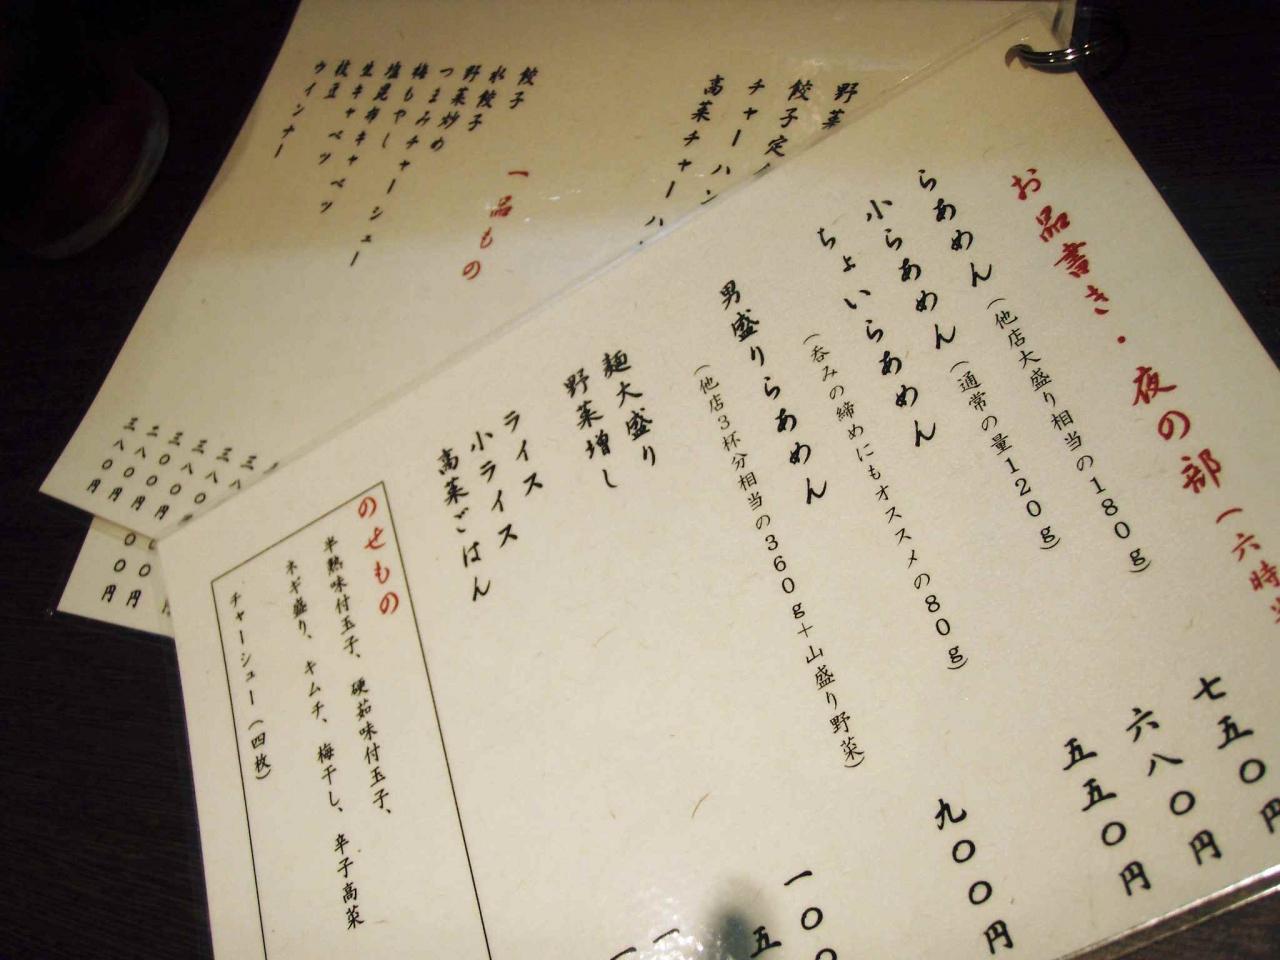 お品書き・夜の部（六時
らあめん（他店大盛り相当の180g） 七五〇円
小らあめん（通常の量120g） 六八〇円
ちょいらあめん 五五〇円
（呑みの締めにもオススメの80g）
男盛りらあめん 九〇〇円
（他店3杯分相当の360g＋山盛り野菜）
麺大盛り 一〇〇
野菜増し 五
ライス
小ライス
高菜ごはん
のせもの
半熟味付玉子、硬茹味付玉子、
ネギ盛り、キムチ、梅干し、辛子高菜
チャーシュー（四枚）
野菜
餃子定
チャーハン
高菜チャーハ
一品もの
餃子
水餃子
野菜炒め
つまみチャーシュー
梅もやし
塩昆布キャベツ
生キャベツ
枝豆
ウインナー
三八〇円
二八〇円
三〇〇円